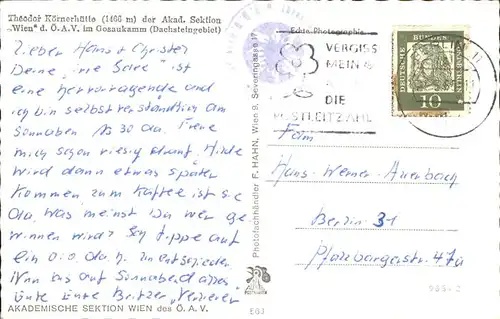 Theodor Körnerhütte (1466 m) der Akad. Sektion
„Wien" d. Ö.A.V. im Gosaukamm (Dachsteingebiet)
Lieber Hans + Christer
Deine Idee ist
eine hervorragende und
ich bin selbstverständlich am
Sonnabend 15 30 da. Freue
mich schon riesig drauf. Hilde
wird dann etwas später
kommen, zum Kaffee ist sie
da. Was meinst Du wer ge
winnen wird? Ich tippe auf
ein 0:0 d.h. Unentschieden
Nun bis auf Sonnabend alles
Gute Britzer
AKADEMISCHE SEKTION WIEN des Ö. A. V.
Photofachhändler F. HAHN, Wien 9, Severingasse
Echte Photographie
VERGISS
MEIN
DIE
POSTLEITZAHL
DEUTSCHE
BUNDESPOST
10
Fam
Hans-Werner Auerbach
Berlin 31
Pfalzburgerstr. 47a